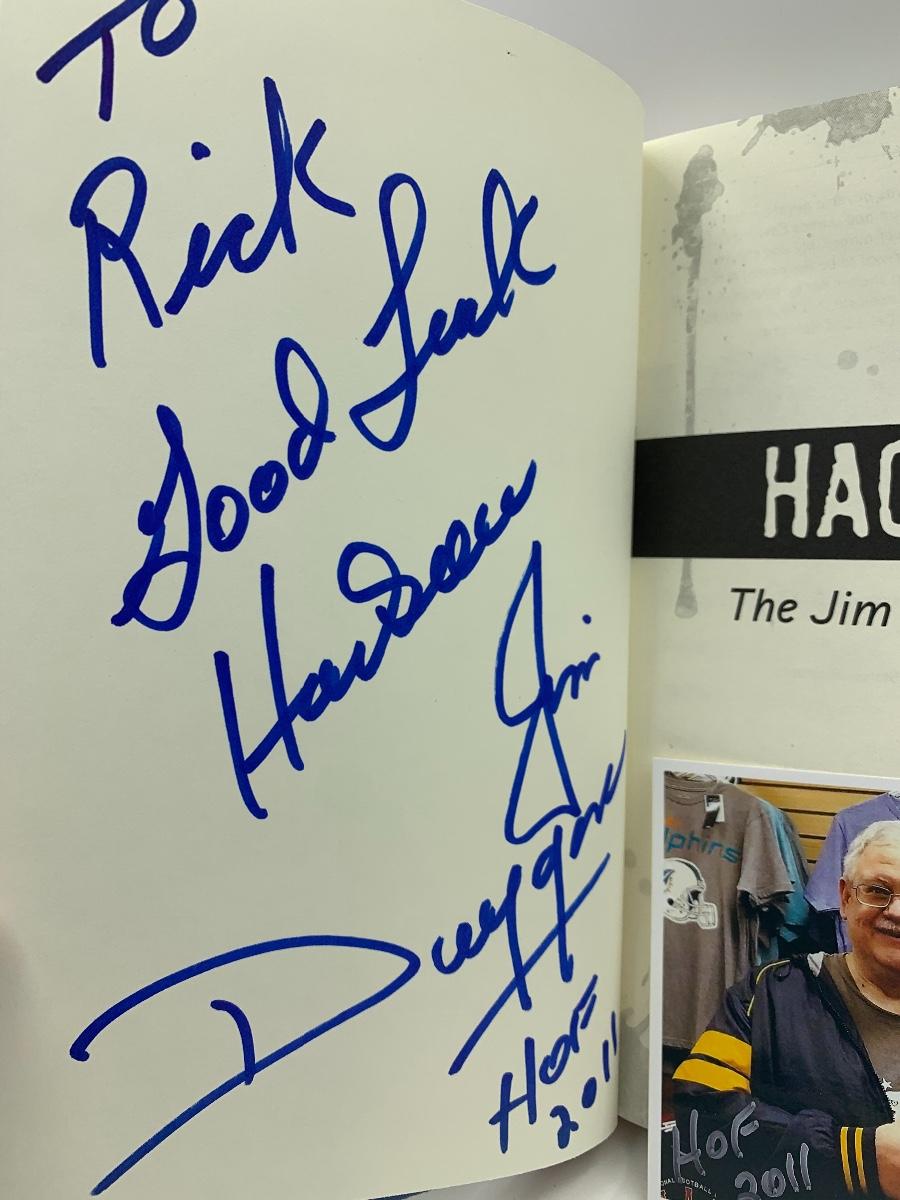 To
Rick
Good Luck
Hacksaw
Jim
Duggan
HOF
2011
HAC
The Jim
lphins
HOF
2011